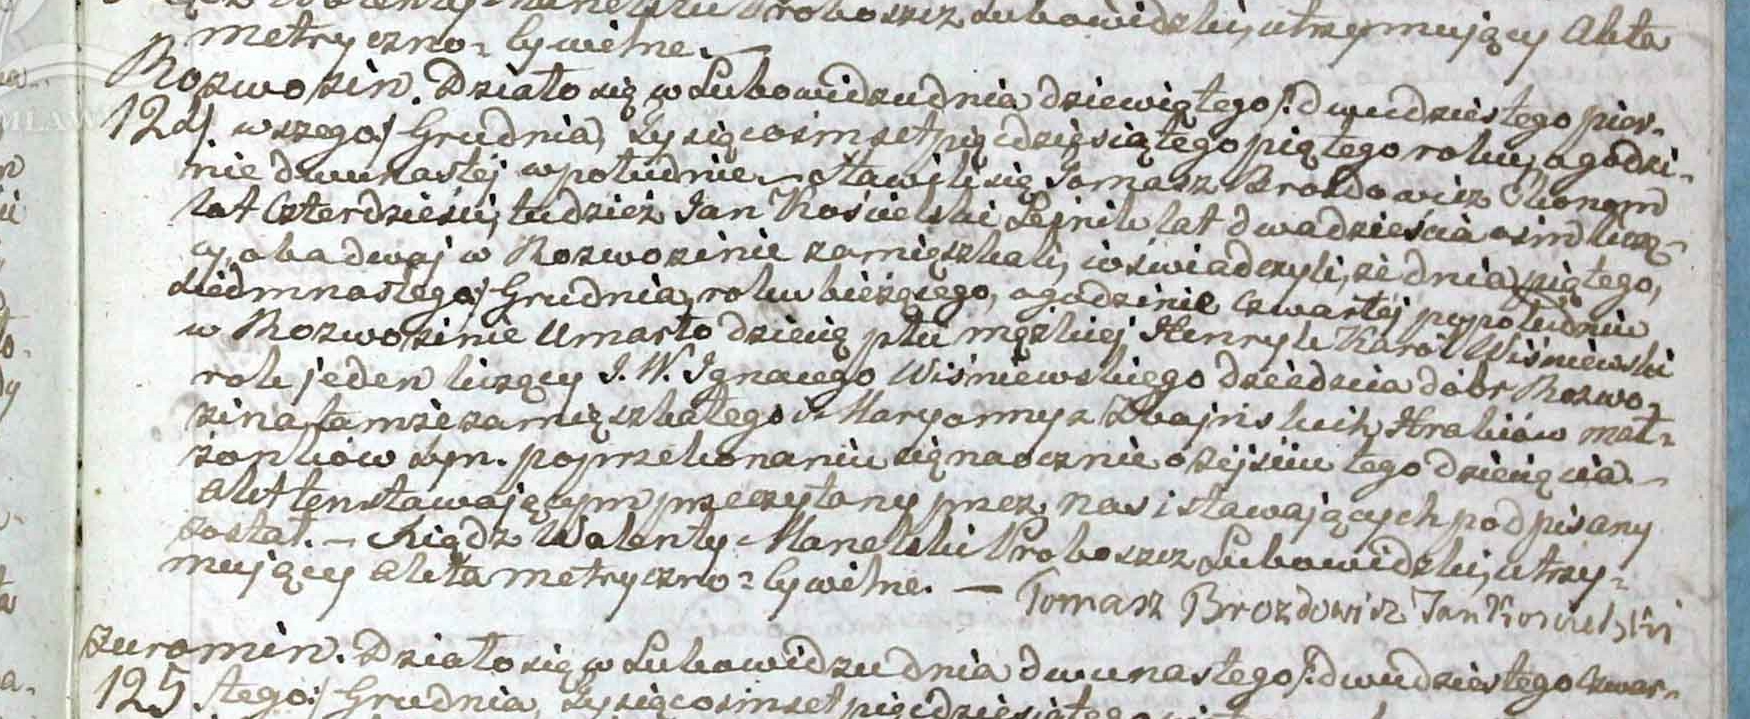 Proboszcz Lubowidzki, utrzymujący Akta
metryczno=Cywilne. —
Rozwozin. Działo się w Lubowidzu dnia dziewiątego /: dwudziestego pier-
124 wszego/ Grudnia, tysiąc osmset pięćdziesiątego piątego roku, o godzi-
nie dwunastej w południe. Stawili się Tomasz Brozdowicz Ekonom
lat czterdzieści, tudzież Jan Kościelski Leśnik lat dwadzieścia osm liczą-
cy, obadwaj w Rozwozinie zamięszkali, i oświadczyli, że dnia piątego,
siedmnastego/ Grudnia, roku bieżącego, o godzinie czwartej popołudniu
w Rozwozinie Umarło dziecię płci męzkiej Henryk Karol Wiśniewski
rok jeden liczący J. W. Ignacego Wiśniewskiego dziedzica dóbr Rozwo=
zina tamże zamięszkałego i Maryanny z Zboińskich, Hrabiów mał=
żonków syn. po przekonaniu się naocznie o zejściu tego dziecięcia. —
Akt ten stawającym przeczytany przez nas i stawających podpisany
został. — Xiądz Walenty Manelski Proboszcz Lubowidzki, utrzy=
mujący Akta metryczno=Cywilne. — Tomasz Brozdowicz Jan Kościelski
Żuromin. Działo się w Lubowidzu dnia dwunastego /: dwudziestego czwar-
125 tego:/ Grudnia, tysiąc osmset pięćdziesiątego
MŁAWA